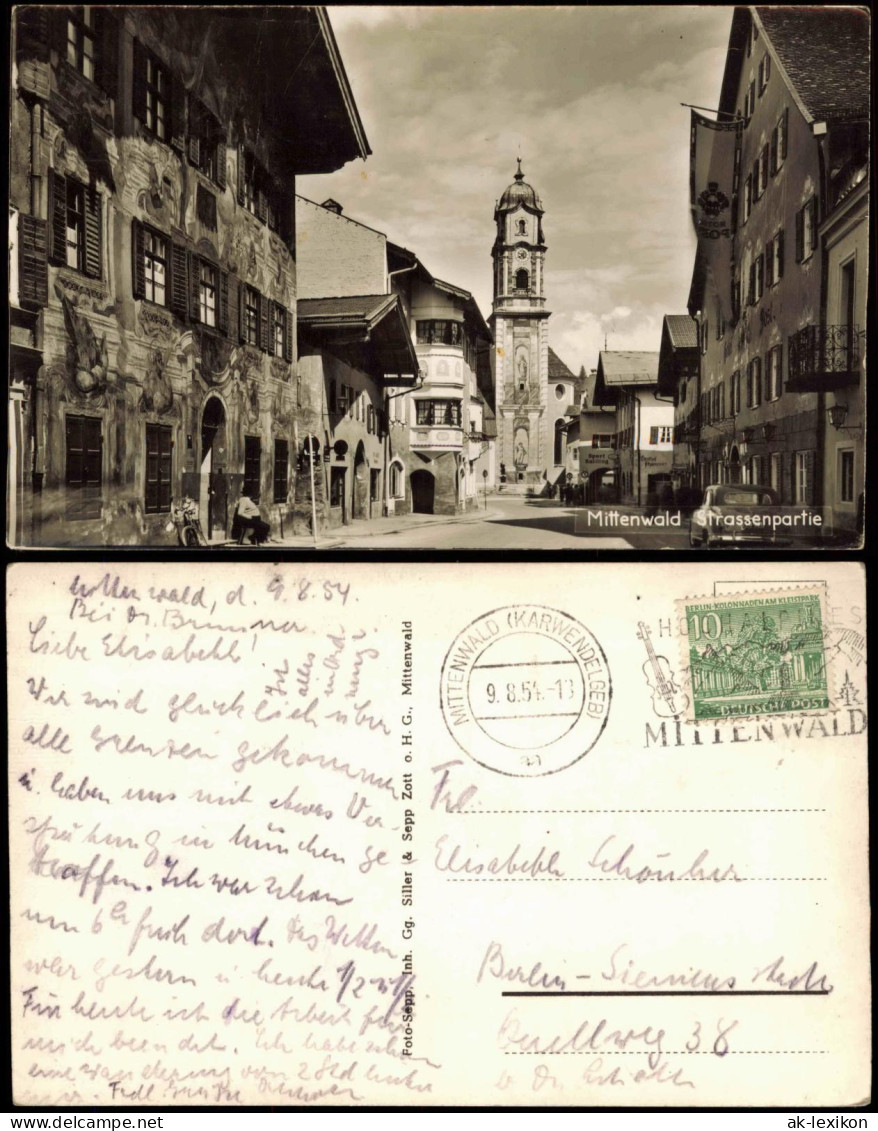 Mittenwald Strassenpartie
Mittenwald, d. 9.8.54.
Bei Dr. Brunner
Liebe Elisabeth!
Wir sind glücklich über
alle Grenzen gekommen
u. haben uns mit etwas Ver-
spätung in München ge-
troffen. Ich war schon
um 6h früh dort. Das Wetter
war gestern u heute
Für heute ist die Arbeit für
mich beendet. Ich habe schon
eine Wanderung von 2 Std hinter
Ist alles in Ord nung
Foto-Sepp, Inh. Gg. Siller & Sepp Zott o. H. G., Mittenwald
MITTENWALD (KARWENDELGEB)
9.8.54.-13
aa
BERLIN-KOLONNADEN AM KLEISTPARK
10
DEUTSCHE POST
MITTENWALD
Frl.
Elisabeth
Berlin-Siemensstadt
Quellweg 38
b Dr.
ak-lexikon